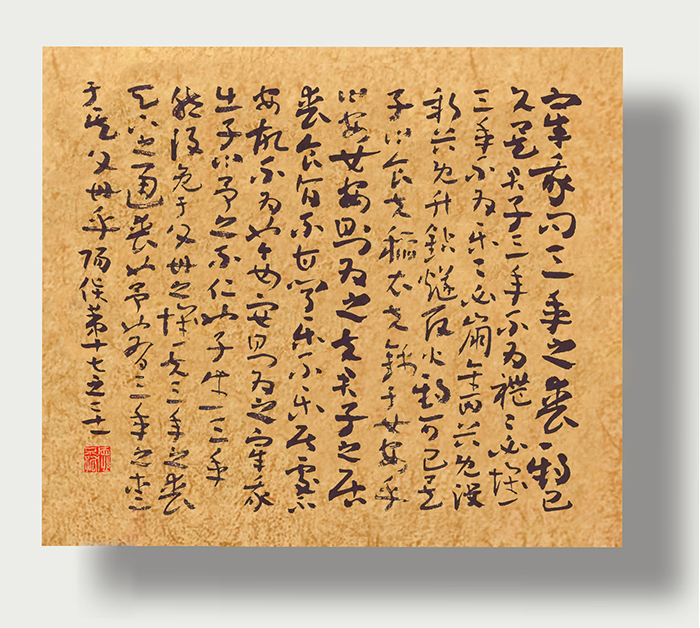 宰我問三年之喪期已
久矣君子三年不為禮〻必壞
三年不為樂〻必崩舊穀既沒
新穀既升鑽燧改火期可已矣
子曰食夫稻衣夫錦于女安乎
曰安女安則為之夫君子之居
喪食旨不甘聞樂不樂居處不
安故不為也今女安則為之宰我
出子曰予之不仁也子生三年
然後免于父母之懷夫三年之喪
天下之通喪也予也有三年之愛
于其父母乎陽貨第十七之二十一